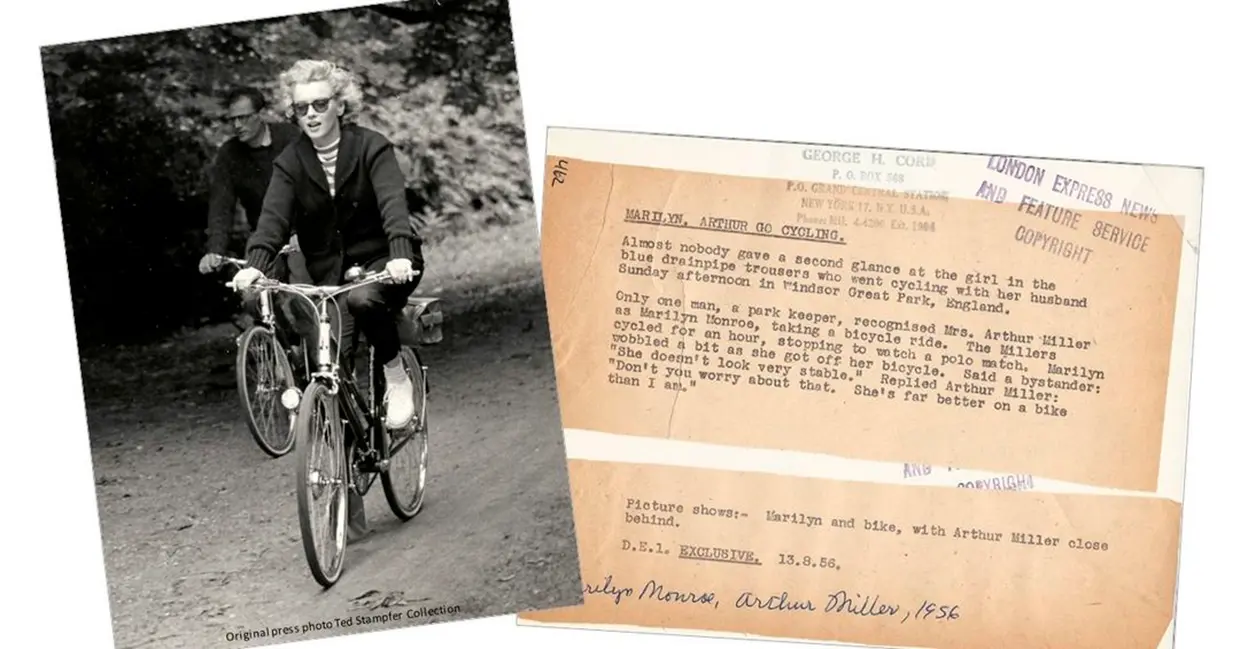 Original press photo Ted Stampfer Collection
462
GEORGE H. CORD
P. O. BOX 568
P.O. GRAND CENTRAL STATION
NEW YORK 17, N.Y. U.S.A.
LONDON EXPRESS NEWS
AND FEATURE SERVICE
COPYRIGHT
MARILYN, ARTHUR GO CYCLING.
Almost nobody gave a second glance at the girl in the
blue drainpipe trousers who went cycling with her husband
Sunday afternoon in Windsor Great Park, England.
Only one man, a park keeper, recognised Mrs. Arthur Miller
as Marilyn Monroe, taking a bicycle ride. The Millers
cycled for an hour, stopping to watch a polo match. Marilyn
wobbled a bit as she got off her bicycle. Said a bystander:
"She doesn't look very stable." Replied Arthur Miller:
"Don't you worry about that. She's far better on a bike
than I am."
AND
COPYRIGHT
Picture shows:- Marilyn and bike, with Arthur Miller close
behind.
D.E.1. EXCLUSIVE. 13.8.56.
rilyn Monroe, Arthur Miller, 1956